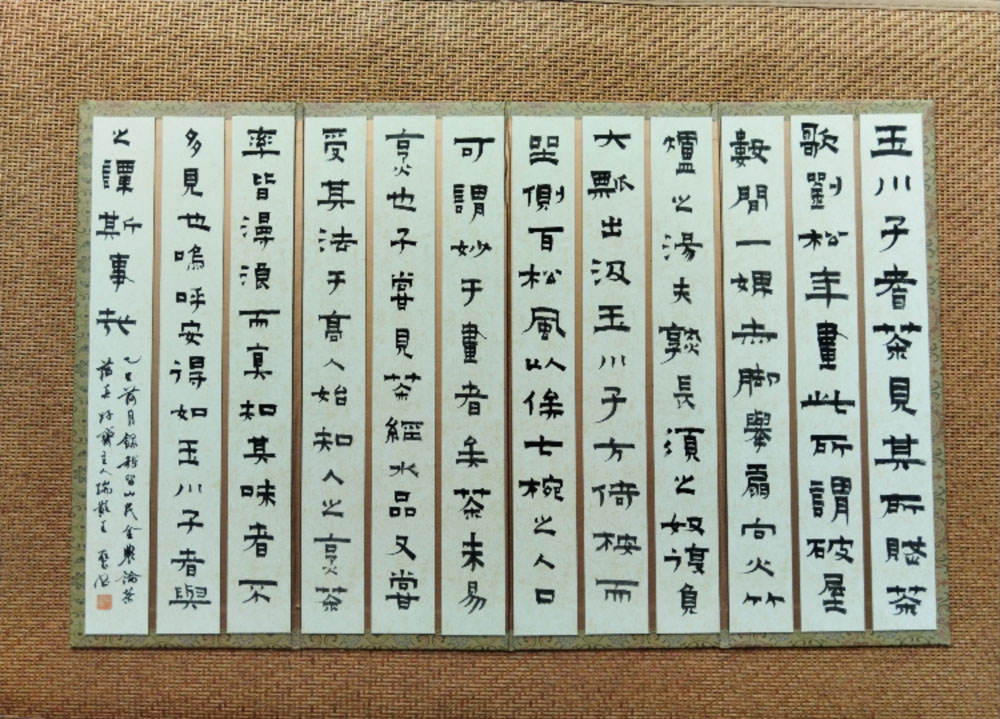 玉川子耆茶見其所賦茶
歌劉松年畫此所謂破屋
數間一婢赤脚舉扇向火竹
爐之湯未熟長須之奴復負
大瓢出汲玉川子方倚桉而
坐側耳松風以俟七椀之入口
可謂妙于畫者矣茶未易
烹也予嘗見茶經水品又嘗
受其法于高人始知人之烹茶
率皆漫浪而真知其味者不
多見也嗚呼安得如玉川子者與
之譚斯事哉
乙巳荷月錄稽留山民金農論茶
齋主人瑞